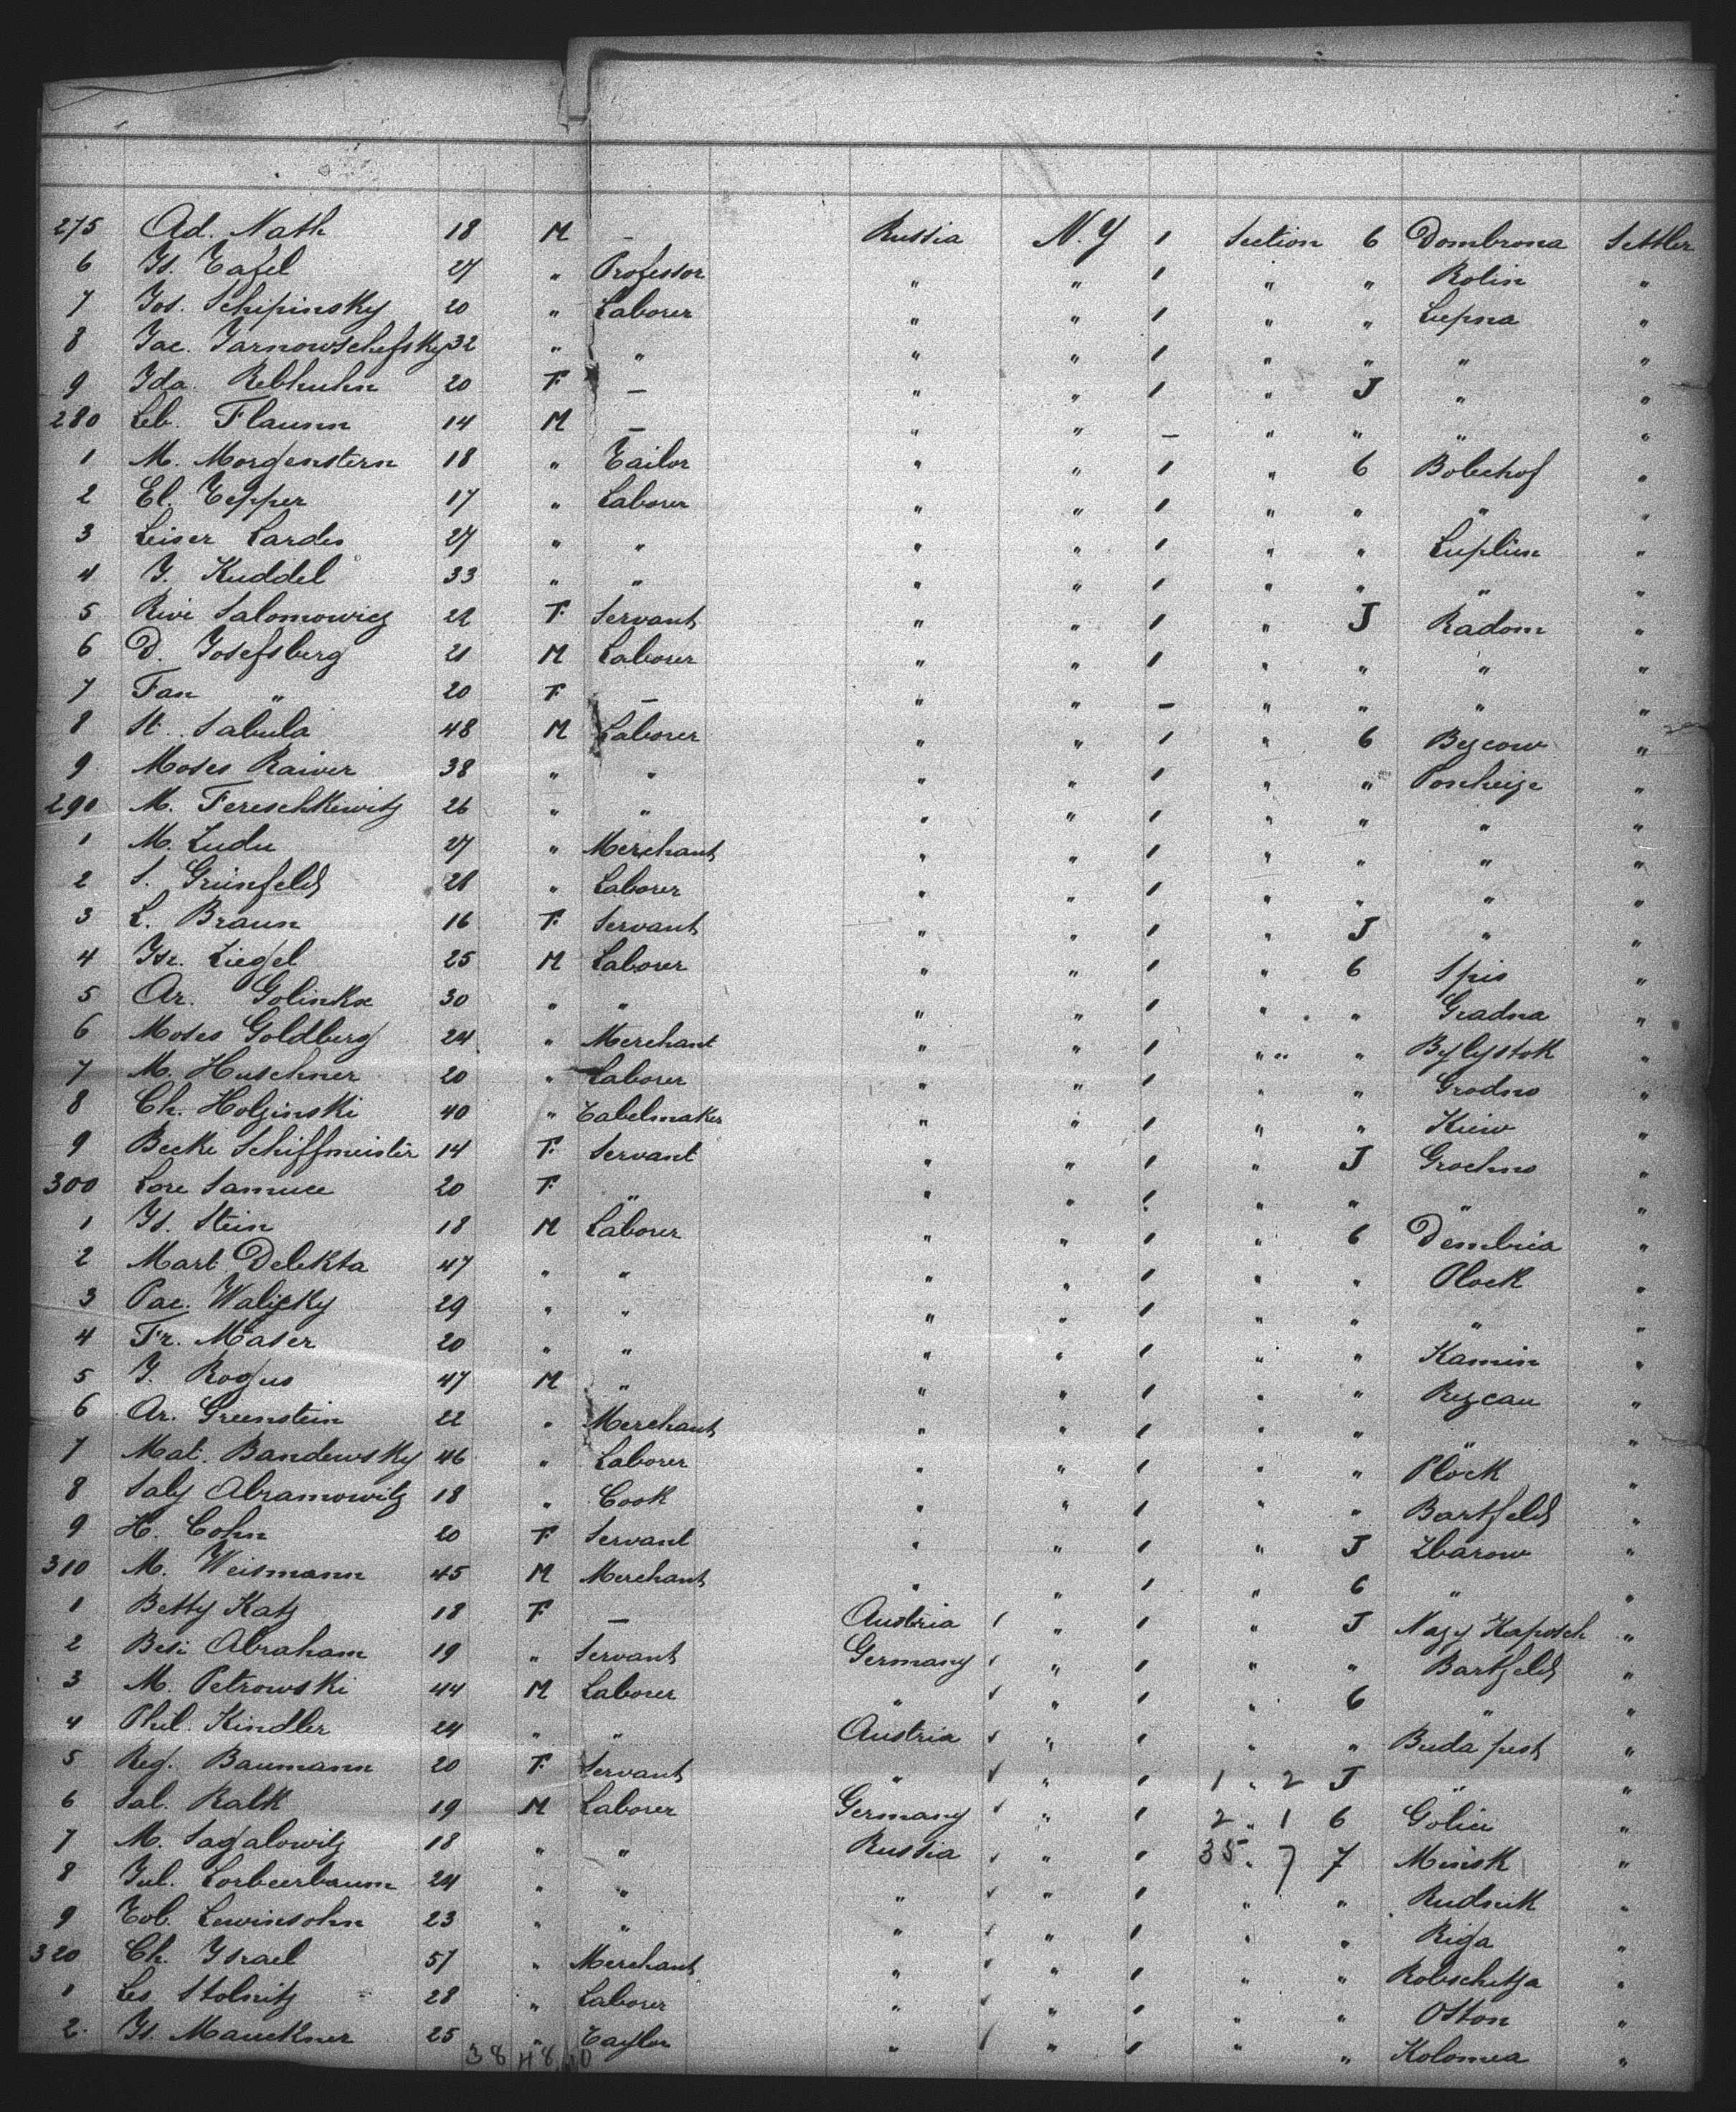 275 Ad. Nath 18 M — Russia N.Y 1 Section 6 Dombrona Settler
6 Is. Tafel 27 " Professor " " 1 " " Rolin "
7 Jos. Schipinsky 20 " Laborer " " 1 " " Lupna "
8 Jac. Jarnowschefsky 32 " " " " 1 " " " "
9 Ida Rebhuhn 20 F — " " 1 " J " "
280 Leb. Flaumn 14 M — " " — " " " "
1 M. Morgenstern 18 " Tailor " " 1 " 6 Bolechof "
2 El. Tepper 17 " Laborer " " 1 " " " "
3 Leiser Lardes 27 " " " " 1 " " Luplin "
4 J. Kuddel 33 " " " " 1 " " " "
5 Rivi Salomowicz 22 F Servant " " 1 " J Radom "
6 D. Josefsberg 21 M Laborer " " 1 " " " "
7 Fan " 20 F — " " — " " " "
8 St. Sabula 48 M Laborer " " 1 " 6 Bezcow "
9 Moses Raiver 38 " " " " 1 " " Ponheize "
290 M. Fereschkewitz 26 " " " " 1 " " " "
1 M. Ludu 27 " Merchant " " 1 " " " "
2 S. Grünfeld 28 " Laborer " " 1 " " " "
3 L. Braun 16 F Servant " " 1 " J " "
4 Isr. Liegel 25 M Laborer " " 1 " 6 Spis "
5 Ar. Golinka 30 " " " " 1 " " Gradna "
6 Moses Goldberg 24 " Merchant " " 1 " " Bylystok "
7 M. Huschner 20 " Laborer " " 1 " " Grodno "
8 Ch. Holzinski 40 " Tabelmaker " " 1 " " Kiew "
9 Becke Schiffmeister 14 F Servant " " 1 " J Grochno "
300 Lore Samuee 20 F " " " 1 " " " "
1 Is. Stein 18 M Laborer " " 1 " 6 Dembria "
2 Mart. Delekta 47 " " " " 1 " " Plock "
3 Pac. Walizky 29 " " " " 1 " " " "
4 Fr. Maser 20 " " " " 1 " " Kamin "
5 J. Rogus 47 M " " " 1 " " Rezcau "
6 Ar. Greenstein 22 " Merchant " " 1 " " " "
7 Mat. Bandewsky 46 " Laborer " " 1 " " Plock "
8 Saly Abramowitz 18 " Cook " " 1 " " Bartfeld "
9 H. Cohn 20 F Servant " " 1 " J Zbarow "
310 M. Weismann 45 M Merchant " " 1 " 6 " "
1 Betty Katz 18 F — Austria " 1 " J Nagy Kaposch "
2 Besi Abraham 19 " Servant Germany " 1 " " Bartfeld "
3 M. Petrowski 44 M Laborer " " 1 " 6 " "
4 Phil. Kindler 24 " " Austria " 1 " " Buda pest "
5 Reg. Baumann 20 F Servant " " 1 1 " 2 J " "
6 Sal. Ralk 19 M Laborer Germany " 1 2 " 1 6 Golice "
7 M. Sagalowitz 18 " " Russia " 1 35 " 7 7 Minsk "
8 Jul. Lorbeerbaum 24 " " " " 1 " " Rudnik "
9 Tob. Lewinsohn 23 " " " " 1 " " Riga "
320 Ch. Israel 51 " Merchant " " 1 " " Robschitza "
1 Les Stolnitz 28 " Laborer " " 1 " " Oston "
2 Is. Mauckner 25 " Taylor " " 1 " " Kolomea "
38 48 10